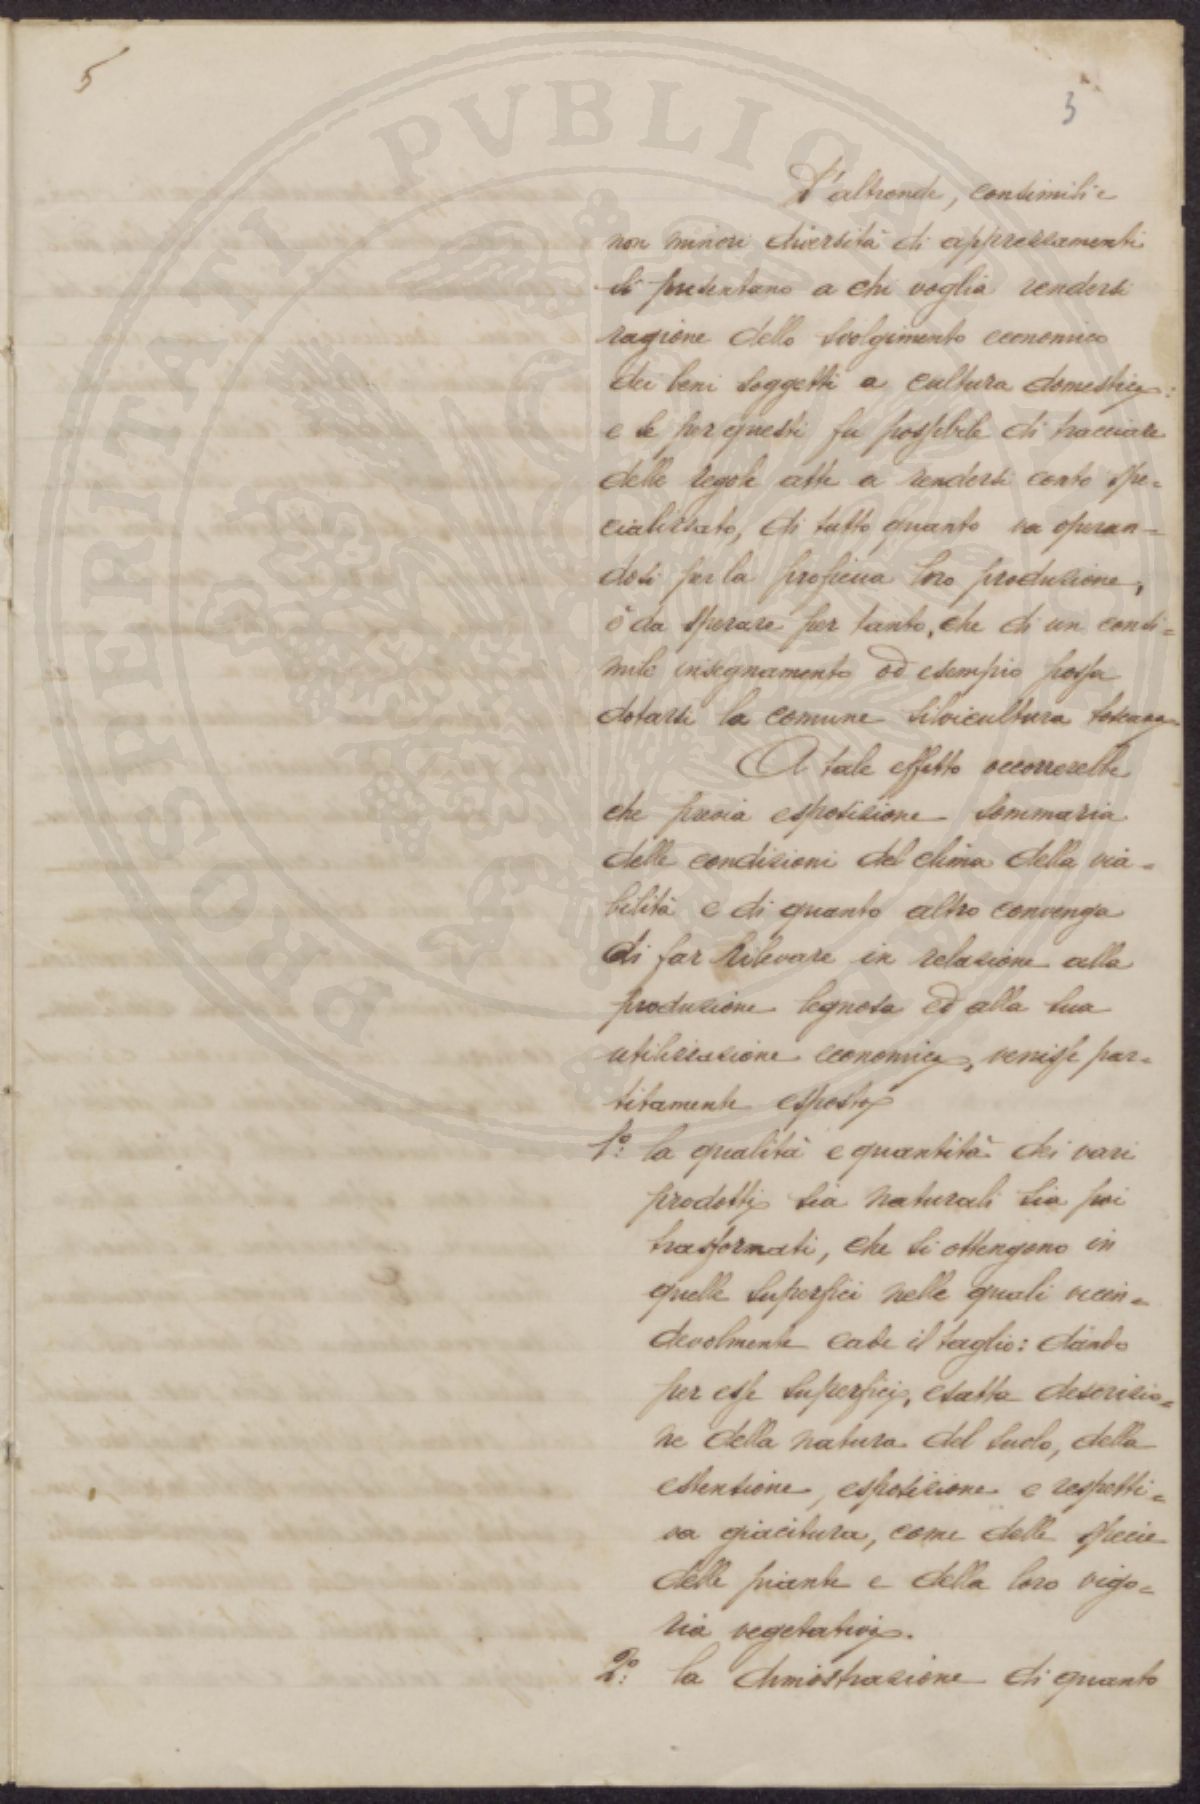 5
3
PROSPERITATI PVBLICAE
D'altronde, consimili e
non minori diversità di apprezzamenti
si presentano a chi voglia rendersi
ragione dello svolgimento economico
dei beni soggetti a cultura domestica:
e se per questi fu possibile di tracciare
delle regole atte a rendersi conto spe=
cializzato, di tutto quanto va operan=
dosi per la proficua loro produzione,
è da sperare per tanto, che di un consi=
mile insegnamento od esempio possa
dotarsi la comune silvicultura toscana
A tale effetto occorrerebbe
che previa esposizione sommaria
delle condizioni del clima della via=
bilità e di quanto altro convenga
di far rilevare in relazione alla
produzione legnosa ed alla sua
utilizzazione economica, venisse par=
titamente esposto
1º: la qualità e quantità dei vari
prodotti sia naturali sia poi
trasformati, che si ottengono in
quelle superfici nelle quali vicen=
devolmente cade il taglio: dando
per esse superfici, esatta descrizio=
ne della natura del suolo, della
estensione, esposizione e respetti=
va giacitura, come delle specie
delle piante e della loro vigo=
ria vegetativa.
2º: la dimostrazione di quanto